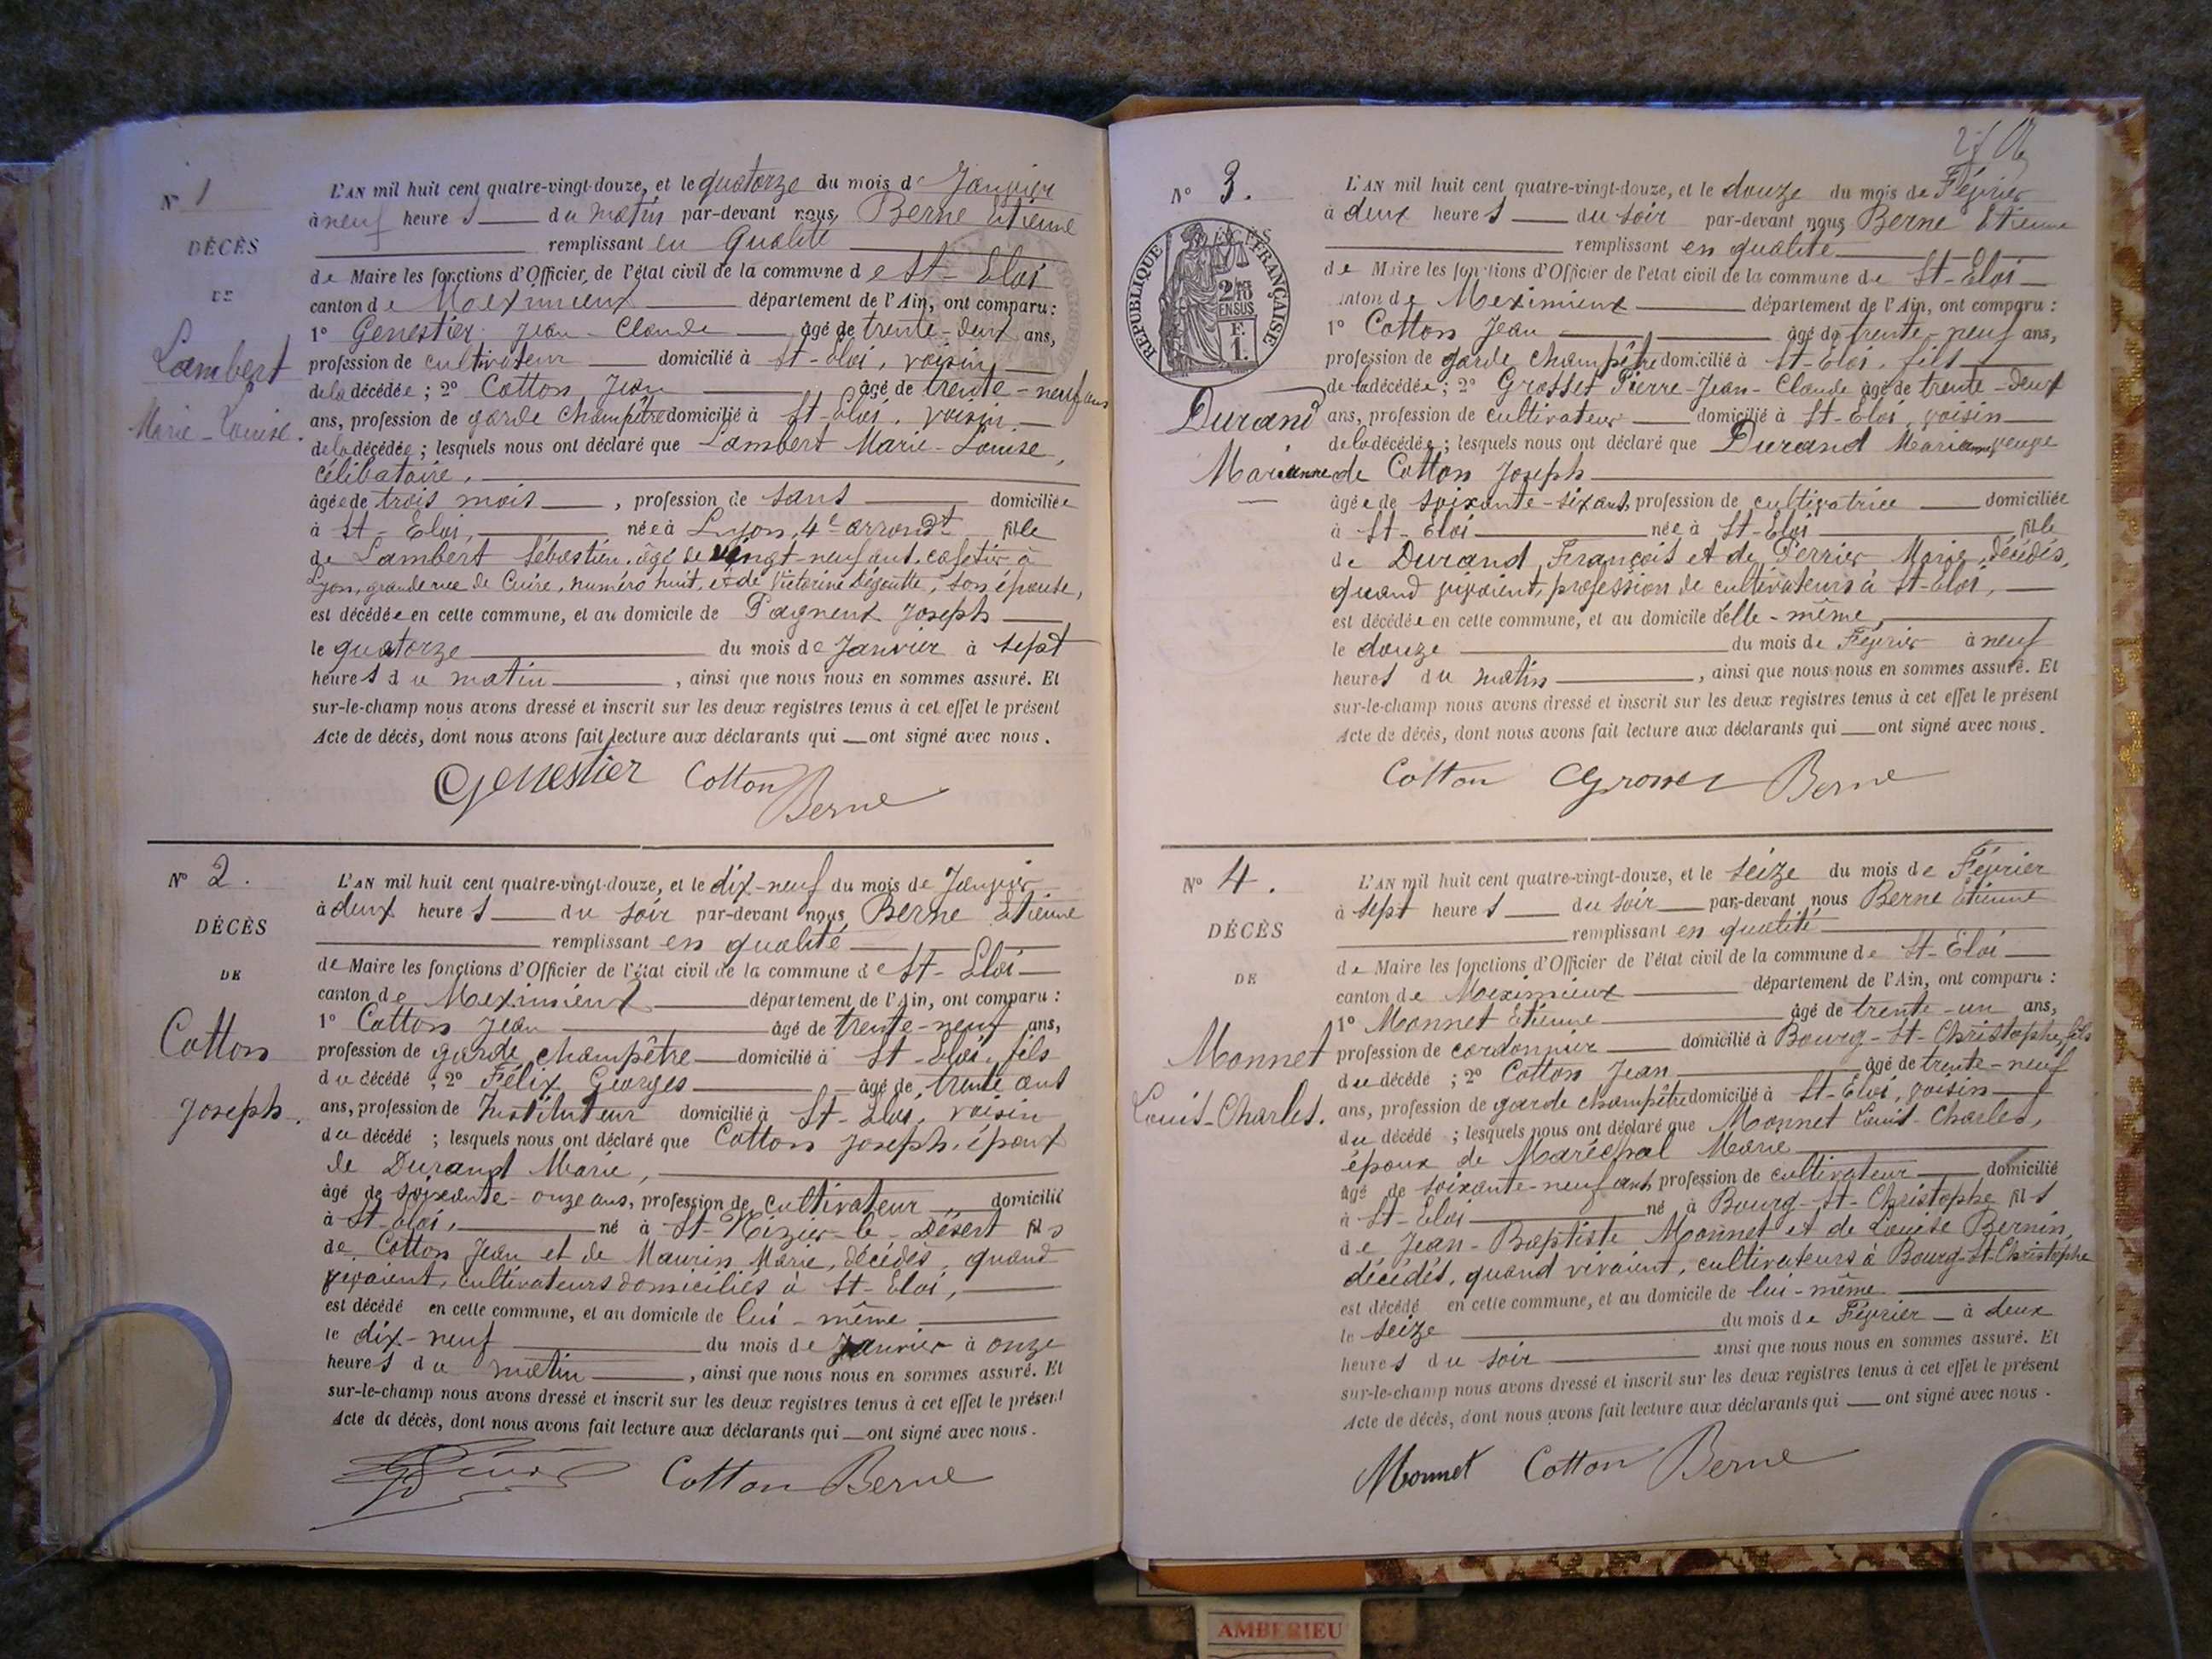 N° 1
DÉCÈS
DE
Lambert
Marie-Louise.
L'AN mil huit cent quatre-vingt-douze, et le quatorze du mois de Janvier
à neuf heures du matin par-devant nous, Berne Etienne
remplissant en qualité
de Maire les fonctions d'Officier de l'état civil de la commune de St-Eloi
canton de Meximieux département de l'Ain, ont comparu :
1° Genestier Jean-Claude âgé de trente-deux ans,
profession de cultivateur domicilié à St-Eloi, voisin
de la décédée ; 2° Cotton Jean âgé de trente-neuf ans
ans, profession de garde champêtre domicilié à St-Eloi, voisin
de la décédée ; lesquels nous ont déclaré que Lambert Marie-Louise,
célibataire,
âgée de trois mois, profession de sans domiciliée
à St-Eloi, née à Lyon, 4e arrondt fille
de Lambert Sébastien, âgé de vingt-neuf ans, cafetier à
Lyon, grande rue de Cuire, numéro huit, et de Victorine, son épouse,
est décédée en cette commune, et au domicile de Pagneux Joseph
le quatorze du mois de Janvier à sept
heures du matin, ainsi que nous nous en sommes assuré. Et
sur-le-champ nous avons dressé et inscrit sur les deux registres tenus à cet effet le présent
Acte de décès, dont nous avons fait lecture aux déclarants qui ont signé avec nous.
Genestier Cotton Berne
N° 2.
DÉCÈS
DE
Cotton
Joseph.
L'AN mil huit cent quatre-vingt-douze, et le dix-neuf du mois de Janvier
à deux heures du soir par-devant nous, Berne Etienne
remplissant en qualité
de Maire les fonctions d'Officier de l'état civil de la commune de St-Eloi
canton de Meximieux département de l'Ain, ont comparu :
1° Cotton Jean âgé de trente-neuf ans,
profession de garde champêtre domicilié à St-Eloi, fils
du décédé ; 2° Félix Georges âgé de trente ans
ans, profession de Instituteur domicilié à St-Eloi, voisin
du décédé ; lesquels nous ont déclaré que Cotton Joseph, époux
de Durand Marie,
âgé de soixante-onze ans, profession de cultivateur domicilié
à St-Eloi, né à St-Nizier-le-Désert fils
de Cotton Jean et de Maurin Marie, décédés, quand
vivaient, cultivateurs domiciliés à St-Eloi,
est décédé en cette commune, et au domicile de lui-même
le dix-neuf du mois de Janvier à onze
heures du matin, ainsi que nous nous en sommes assuré. Et
sur-le-champ nous avons dressé et inscrit sur les deux registres tenus à cet effet le présent
Acte de décès, dont nous avons fait lecture aux déclarants qui ont signé avec nous.
Cotton Berne
N° 3.
DÉCÈS
RÉPUBLIQUE FRANÇAISE
2/10
EN SUS
F.
1.
Durand
Marianne
L'AN mil huit cent quatre-vingt-douze, et le douze du mois de Février
à deux heures du soir par-devant nous Berne Etienne
remplissant en qualité
de Maire les fonctions d'Officier de l'état civil de la commune de St-Eloi
canton de Meximieux département de l'Ain, ont comparu :
1° Cotton Jean âgé de trente-neuf ans,
profession de garde champêtre domicilié à St-Eloi, fils
de la décédée ; 2° Grosset Pierre-Jean-Claude âgé de trente-deux
ans, profession de cultivateur domicilié à St-Eloi, voisin
de la décédée ; lesquels nous ont déclaré que Durand Marianne veuve
de Cotton Joseph
âgée de soixante-six ans, profession de cultivatrice domiciliée
à St-Eloi née à St-Eloi fille
de Durand François et de Perrier Marie, décédés,
quand vivaient, profession de cultivateurs à St-Eloi,
est décédée en cette commune, et au domicile d'elle-même,
le douze du mois de Février à neuf
heures du matin, ainsi que nous nous en sommes assuré. Et
sur-le-champ nous avons dressé et inscrit sur les deux registres tenus à cet effet le présent
Acte de décès, dont nous avons fait lecture aux déclarants qui ont signé avec nous.
Cotton Grosset Berne
N° 4.
DÉCÈS
DE
Monnet
Louis-Charles.
L'AN mil huit cent quatre-vingt-douze, et le seize du mois de Février
à sept heures du soir par-devant nous Berne Etienne
remplissant en qualité
de Maire les fonctions d'Officier de l'état civil de la commune de St-Eloi
canton de Meximieux département de l'Ain, ont comparu :
1° Monnet Etienne âgé de trente-un ans,
profession de cordonnier domicilié à Bourg-St-Christophe, fils
du décédé ; 2° Cotton Jean âgé de trente-neuf
ans, profession de garde champêtre domicilié à St-Eloi, voisin
du décédé ; lesquels nous ont déclaré que Monnet Louis-Charles,
époux de Maréchal Marie
âgé de soixante-neuf ans, profession de cultivateur domicilié
à St-Eloi né à Bourg-St-Christophe fils
de Jean-Baptiste Monnet et de Louise Bernin,
décédés, quand vivaient, cultivateurs à Bourg-St-Christophe
est décédé en cette commune, et au domicile de lui-même
le seize du mois de Février à deux
heures du soir ainsi que nous nous en sommes assuré. Et
sur-le-champ nous avons dressé et inscrit sur les deux registres tenus à cet effet le présent
Acte de décès, dont nous avons fait lecture aux déclarants qui ont signé avec nous.
Monnet Cotton Berne
AMBERIEU